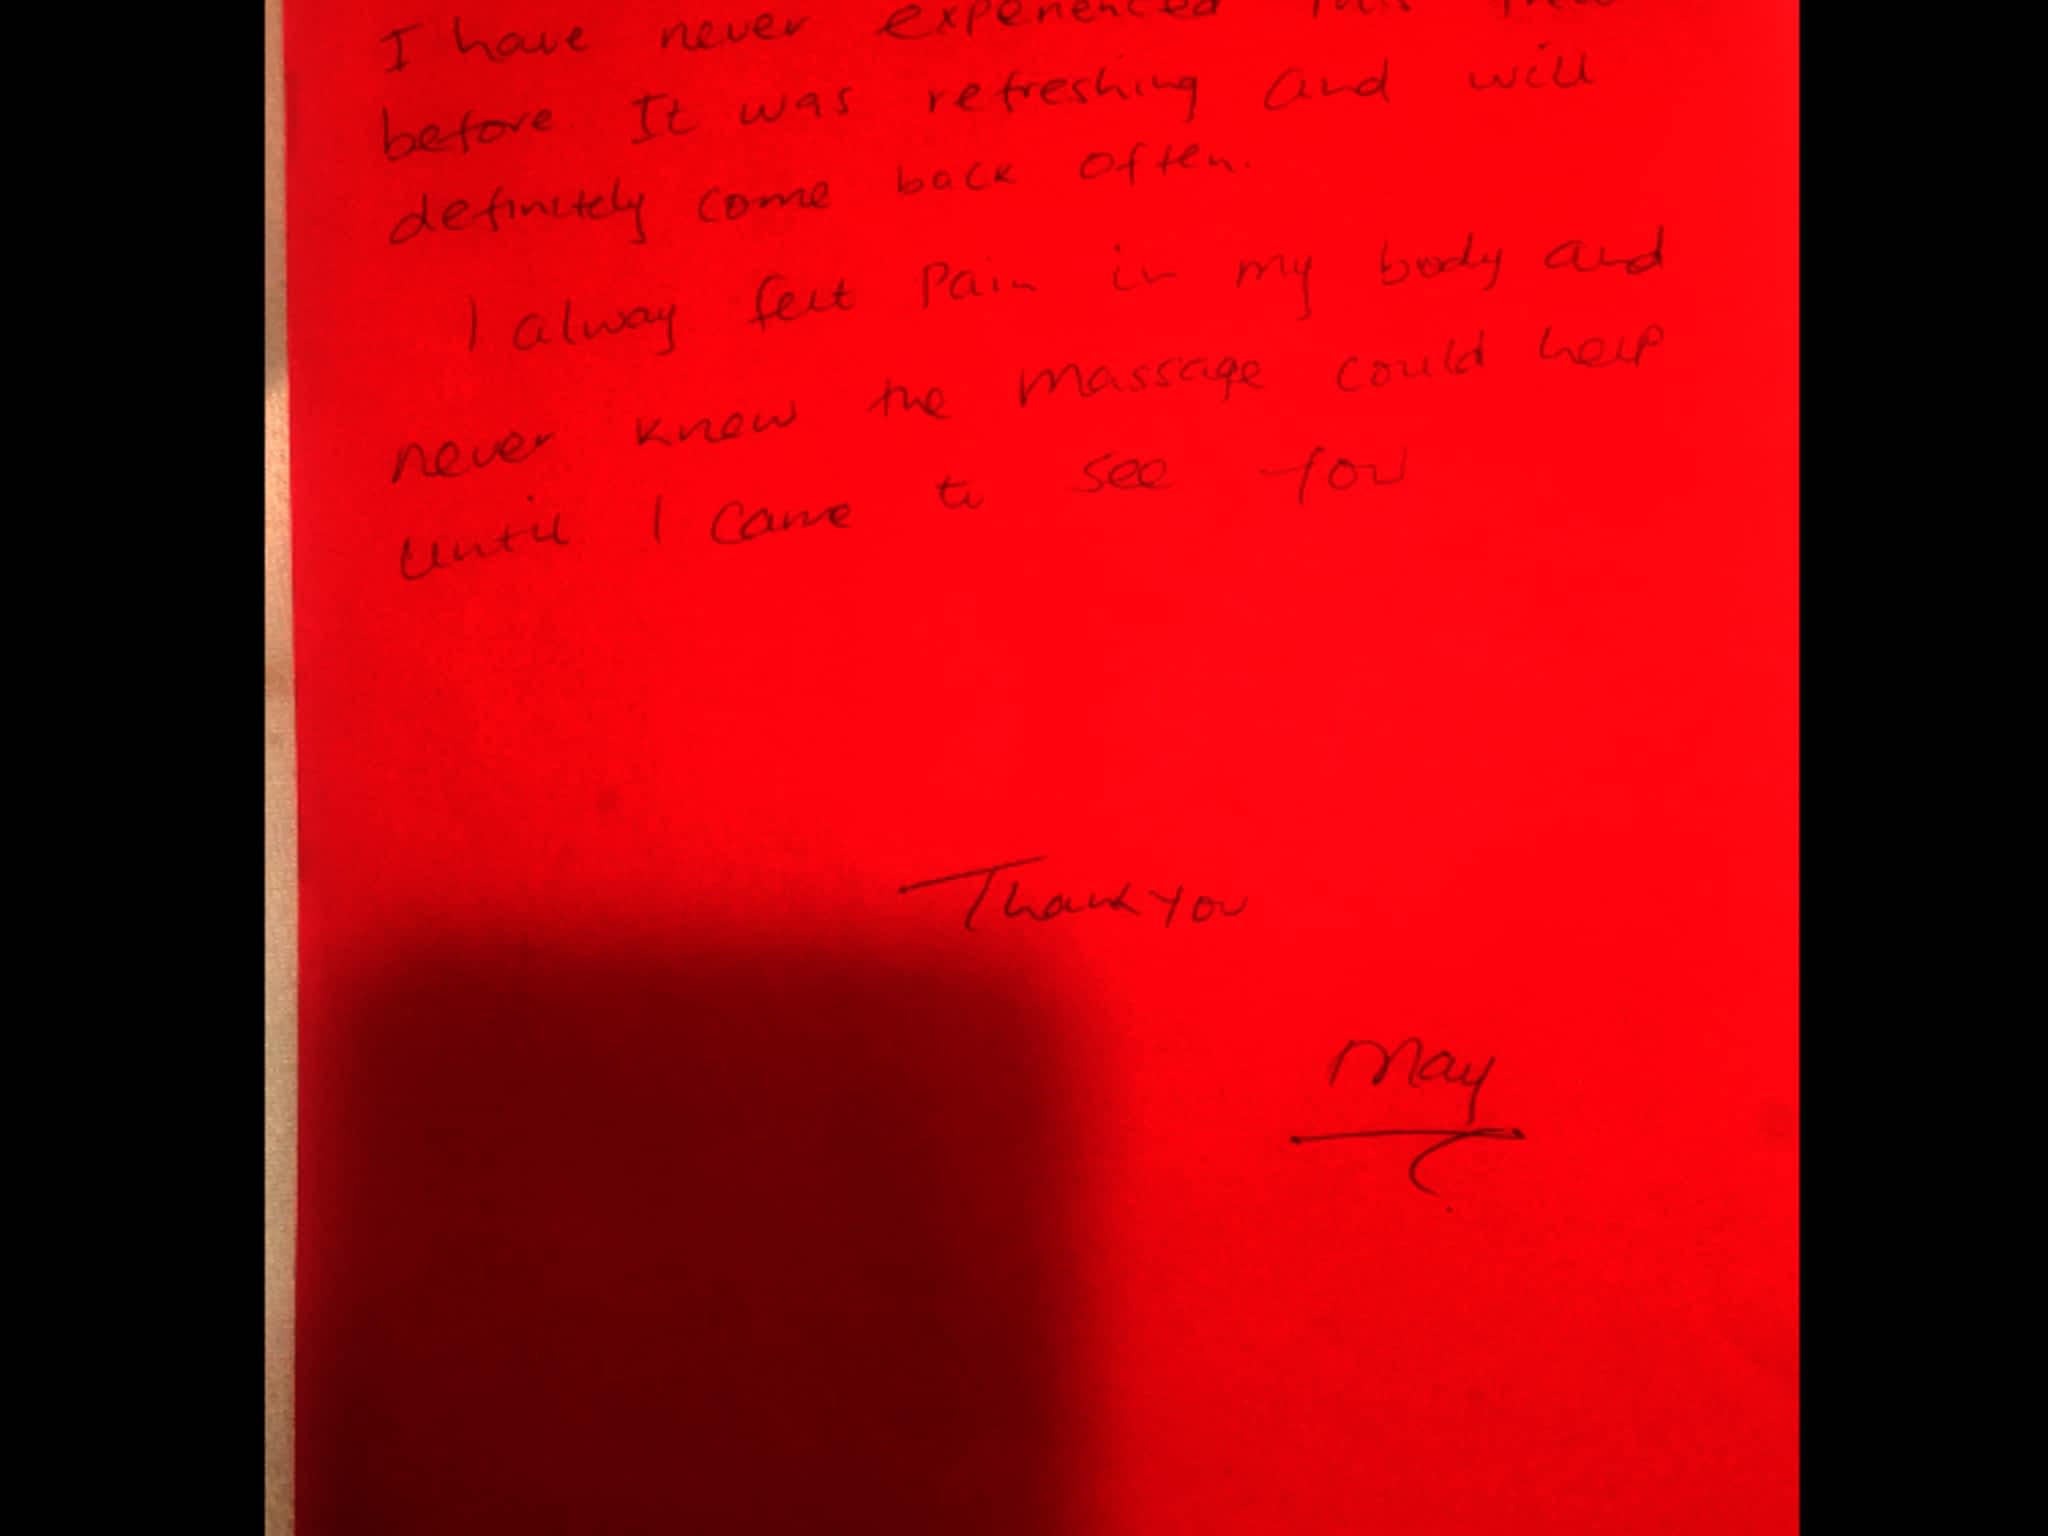 I have never experienced this
before It was refreshing and will
definitely come back often.
I alway felt Pain in my body and
never knew the massage could help
until I came to see You
Thank you
May